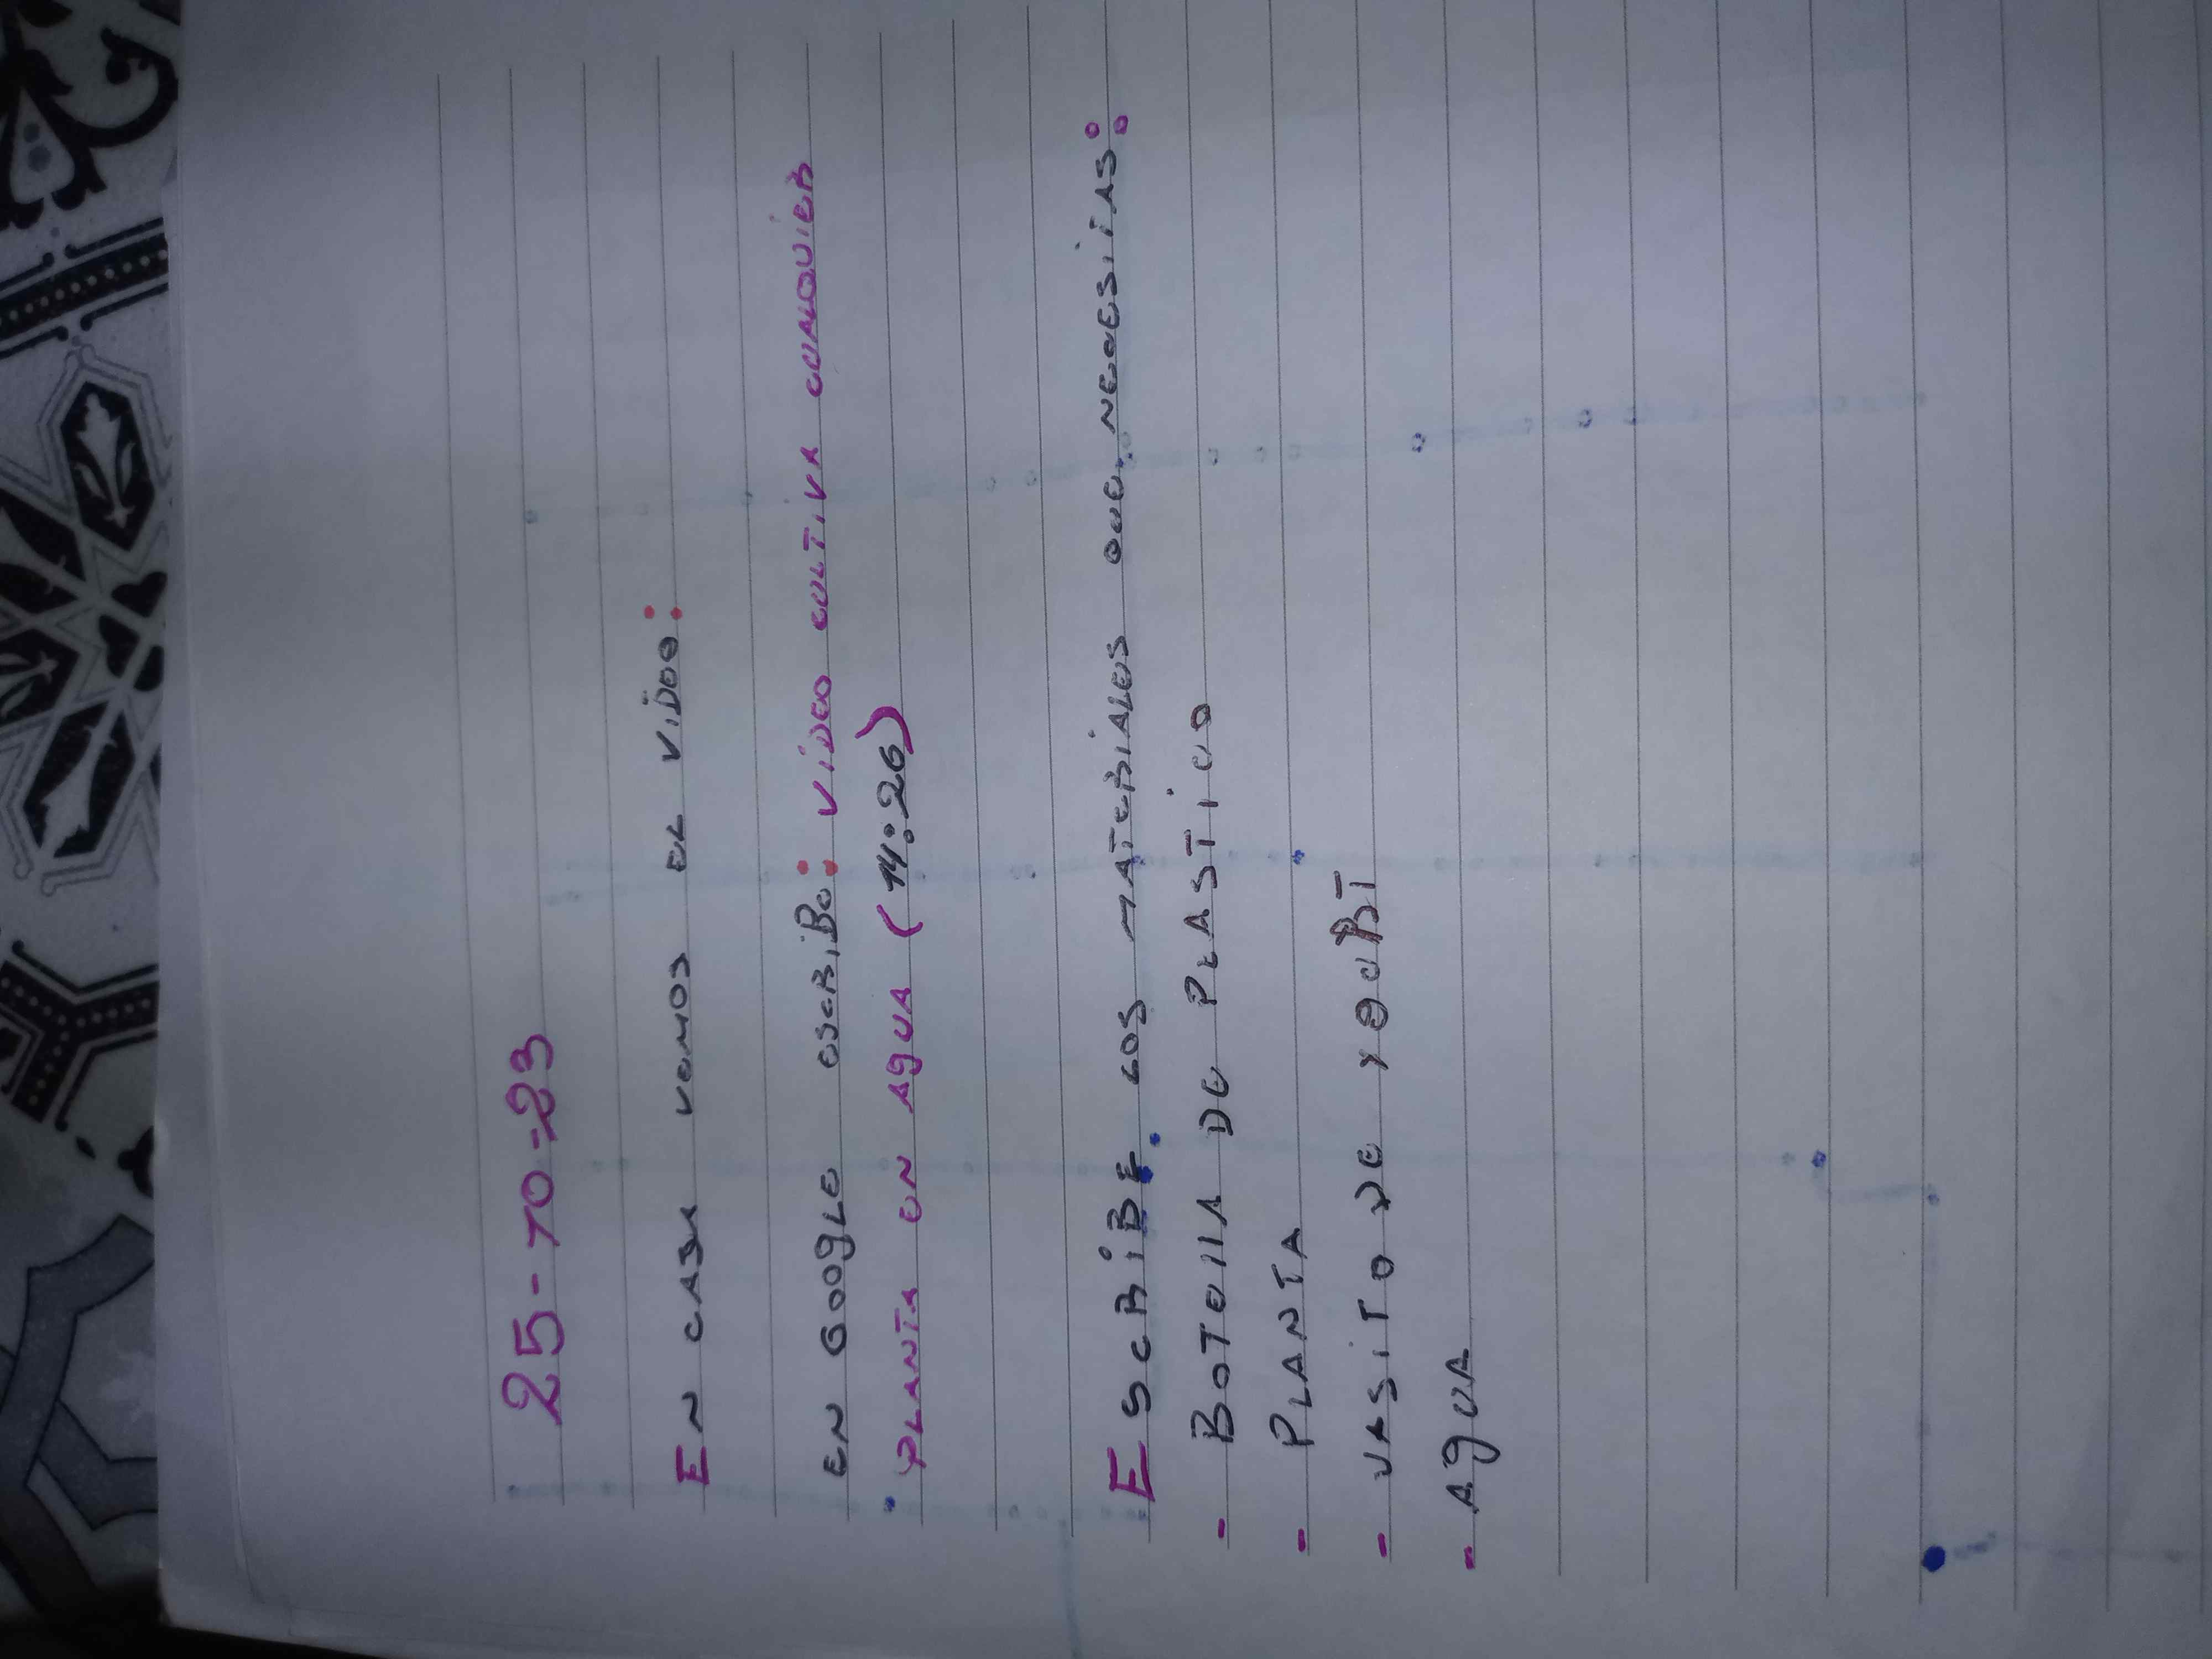 25-10-23
EN CASA VEMOS EL VIDEO:
EN GOOGLE ESCRIBE: VIDEO CULTIVA CUALQUIER
PLANTA EN AGUA (14:26)
ESCRIBE LOS MATERIALES QUE NECESITAS:
- BOTELLA DE PLASTICO
- PLANTA
- VASITO DE YOGURT
- AGUA